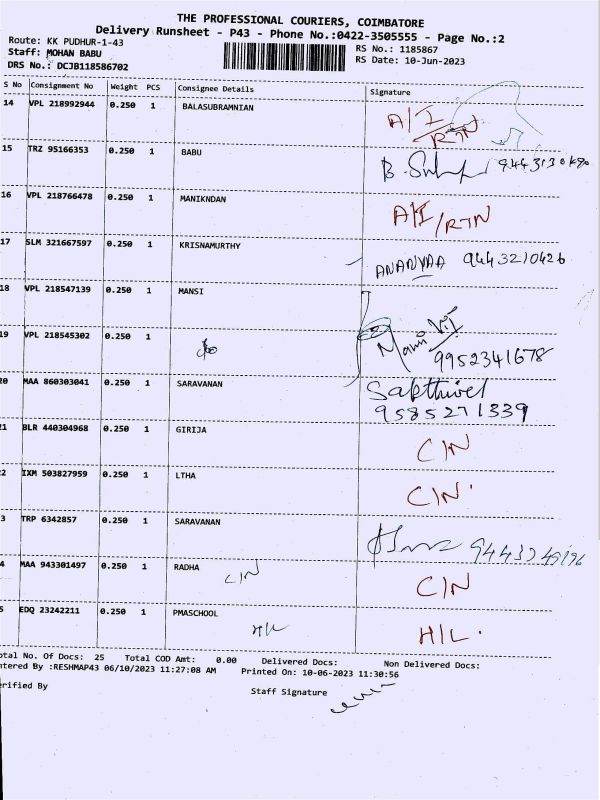 THE PROFESSIONAL COURIERS, COIMBATORE
Delivery Runsheet - P43 - Phone No.:0422-3505555 - Page No.:2
Route: KK PUDHUR-1-43
Staff: MOHAN BABU
DRS No.: DCJB118586702
RS No.: 1185867
RS Date: 10-Jun-2023
S No Consignment No Weight PCS Consignee Details Signature
14 VPL 218992944 0.250 1 BALASUBRAMNIAN A/I RTN
15 TRZ 95166353 0.250 1 BABU B.
16 VPL 218766478 0.250 1 MANIKNDAN A/I/RTN
17 SLM 321667597 0.250 1 KRISNAMURTHY ANANYAA 9443210426
18 VPL 218547139 0.250 1 MANSI
19 VPL 218545302 0.250 1 9952341678
20 MAA 860303041 0.250 1 SARAVANAN Sakthivel
9585271339
21 BLR 440304968 0.250 1 GIRIJA C/N
2 IXM 503827959 0.250 1 LTHA C/N.
3 TRP 6342857 0.250 1 SARAVANAN
4 MAA 943301497 0.250 1 RADHA C/N C/N
5 EDQ 23242211 0.250 1 PMASCHOOL H/L H/L.
otal No. Of Docs: 25 Total COD Amt: 0.00 Delivered Docs: Non Delivered Docs:
ntered By :RESHMAP43 06/10/2023 11:27:08 AM Printed On: 10-06-2023 11:30:56
erified By Staff Signature